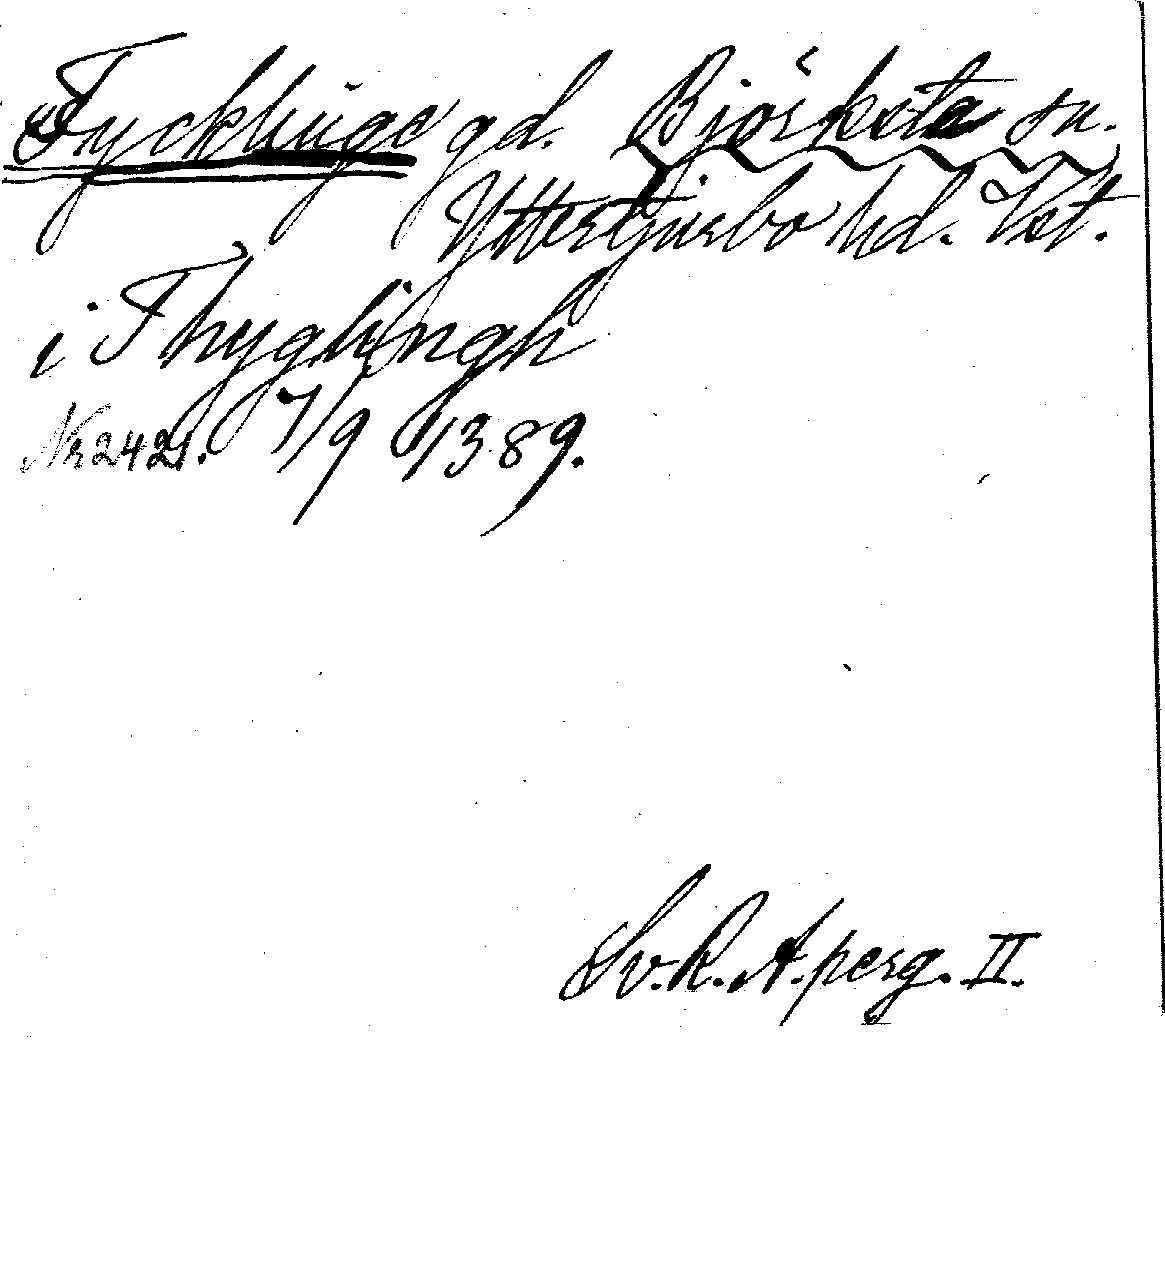 Tycklinge gd. Björksta sn.
Yttertjurbo hd. Vst.
i Thyglingh
Nr 2421. 7/9 1389.
Sv. R. A. perg. II.